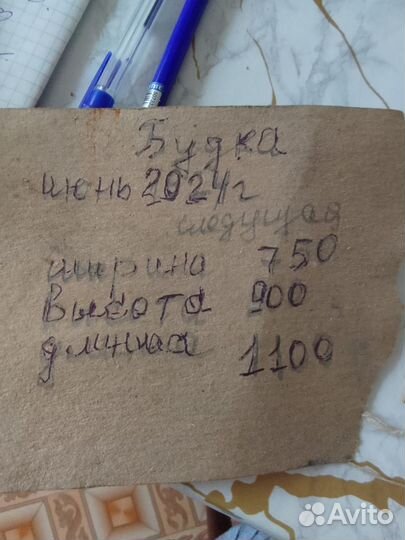 Будка
июнь 2024 г
следущая
ширина 750
Высота 900
длинная 1100
Avito